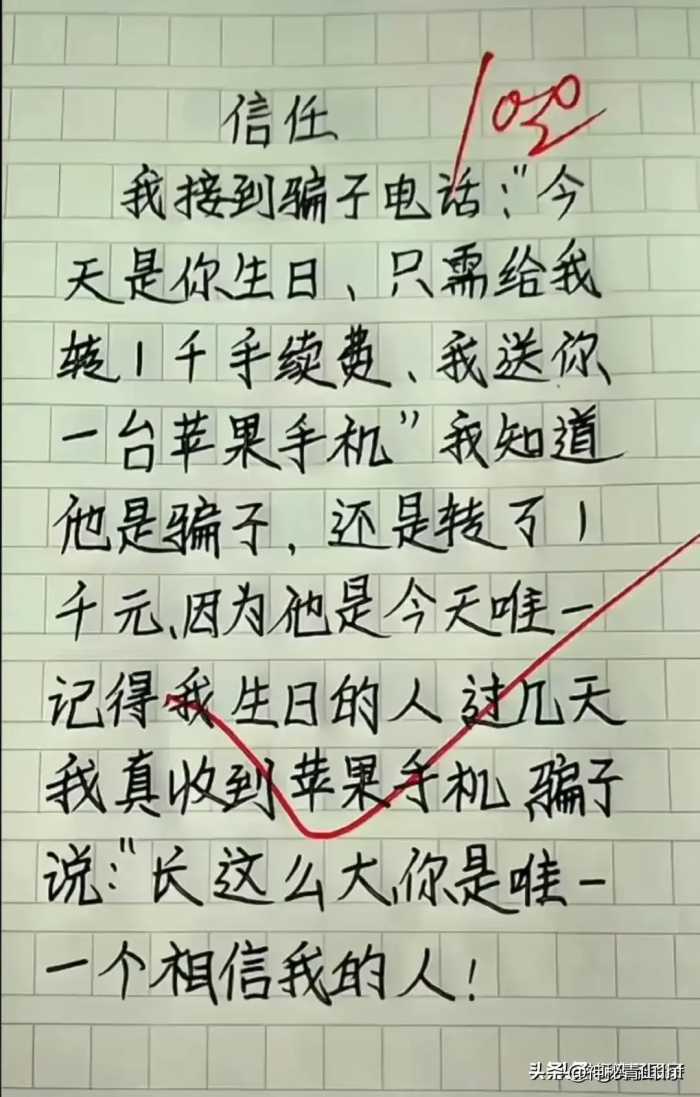 信任
100
我接到骗子电话:"今
天是你生日、只需给我
转1千手续费、我送你
一台苹果手机"我知道
他是骗子,还是转了1
千元、因为他是今天唯一
记得我生日的人过几天
我真收到苹果手机,骗子
说:"长这么大,你是唯一
一个相信我的人!
头条@神秘青